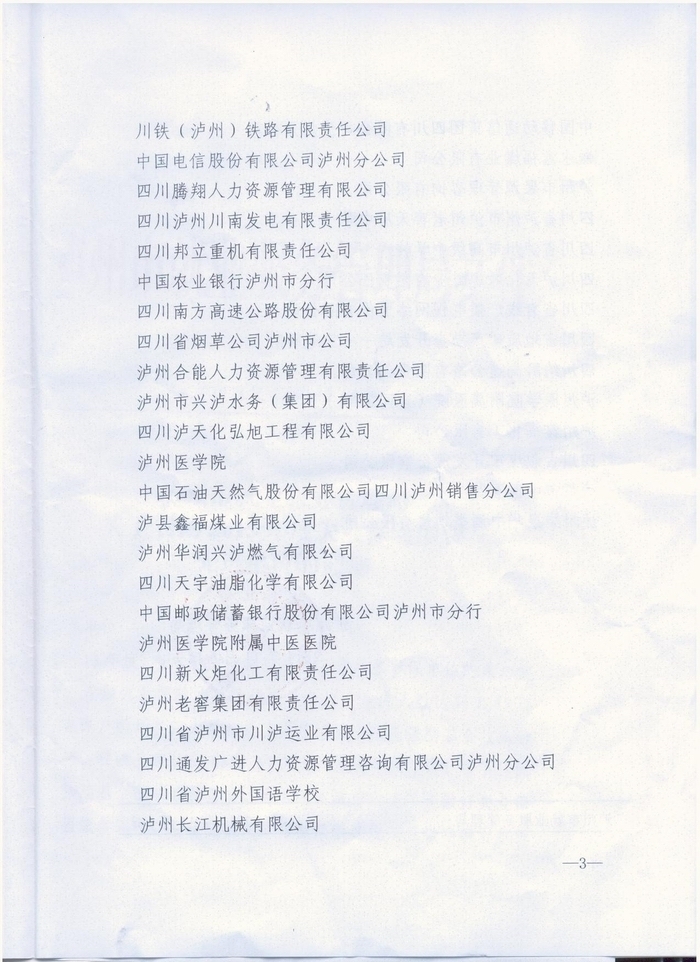 川铁（泸州）铁路有限责任公司
中国电信股份有限公司泸州分公司
四川腾翔人力资源管理有限公司
四川泸州川南发电有限责任公司
四川邦立重机有限责任公司
中国农业银行泸州市分行
四川南方高速公路股份有限公司
四川省烟草公司泸州市公司
泸州合能人力资源管理有限责任公司
泸州市兴泸水务（集团）有限公司
四川泸天化弘旭工程有限公司
泸州医学院
中国石油天然气股份有限公司四川泸州销售分公司
泸县鑫福煤业有限公司
泸州华润兴泸燃气有限公司
四川天宇油脂化学有限公司
中国邮政储蓄银行股份有限公司泸州市分行
泸州医学院附属中医医院
四川新火炬化工有限责任公司
泸州老窖集团有限责任公司
四川省泸州市川泸运业有限公司
四川通发广进人力资源管理咨询有限公司泸州分公司
四川省泸州外国语学校
泸州长江机械有限公司
—3—